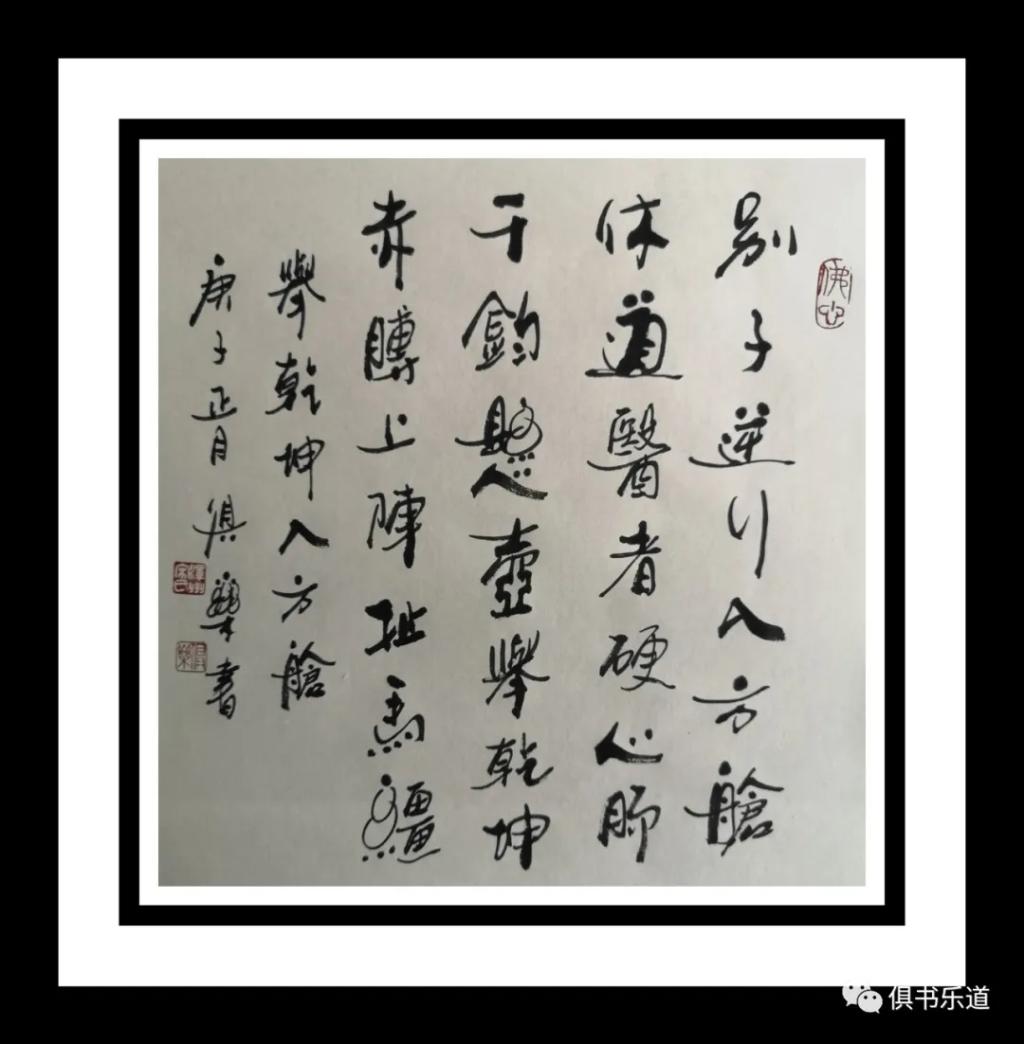 佛心
别子逆行入方艙
休道醫者硬心腸
千鈞懸壺舉乾坤
赤膊上陣扯馬繮
舉乾坤入方艙
庚子正月 俱樂書
俱书乐道